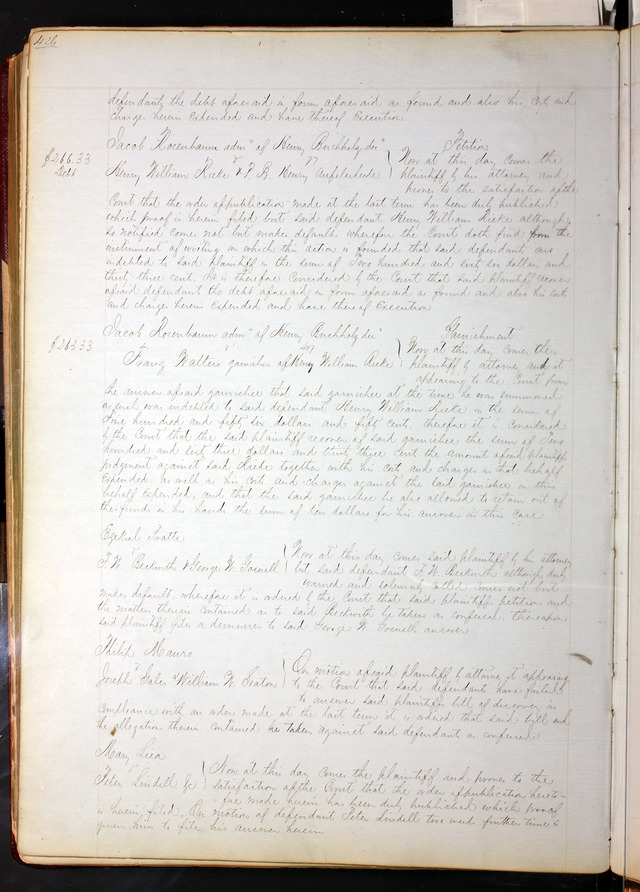 426
defendants the debt aforesaid in form aforesaid as found and also his cost and
charges herein expended and have thereof Execution
Jacob Rosenbaum admr of Henry Buchholz decd Petition
$266.33 vs
Debt Henry William Rieke & P. R. Henry } Now at this day comes the
plaintiff by his attorney and
proves to the satisfaction of the
Court that the order of publication made at the last term has been duly published
which proof is herein filed but said defendant Henry William Rieke although
so notified comes not but makes default, wherefore the Court doth find from the
instrument of writing on which the action is founded that said defendants are
indebted to said plaintiff in the sum of Two hundred and sixty six dollars and
thirty three cents It is therefore Considered by the Court that said plaintiff recover
of said defendants the debt aforesaid in form aforesaid as found and also his costs
and charges herein expended and have thereof Execution
Jacob Rosenbaum admr of Henry Buchholz decd Garnishment
$263.33 vs
Franz Walters garnishee of Henry William Rieke } Now at this day comes the
plaintiff by attorney and it
appearing to the Court from
the answer of said garnishee that said garnishee at the time he was summoned
as such was indebted to said defendant Henry William Rieke in the sum of
five hundred and fifty six dollars and fifty cents, therefore it is Considered
by the Court that the said plaintiff recover of said garnishee the sum of Two
hundred and sixty three dollars and thirty three cents the amount of said plaintiffs
judgment against said Rieke together with his costs and charges in that behalf
expended as well as his costs and charges against the said garnishee in this
behalf expended, and that the said garnishee be also allowed to retain out of
the funds in his hands the sum of ten dollars for his answer in this case
Ezekiel
vs
F. W. Beckwith & George W. } Now at this day comes said plaintiff by his attorney
but said defendant F. W. Beckwith although duly
warned and solemnly called comes not but
makes default, wherefore it is ordered by the Court that said plaintiffs petition and
the matters therein contained as to said Beckwith be taken as confessed, thereupon
said plaintiff files a demurrer to said George W. answer
Philip Mauro
vs
Joseph Gales & William W. Seaton } On motion of said plaintiff by attorney it appearing
to the Court that said defendants have failed
to answer said plaintiffs bill of discovery in
compliance with an order made at the last term it is ordered that said bill and
the allegations therein contained be taken against said defendants as confessed
Mary
vs
Peter Lindell &c } Now at this day comes the plaintiff and proves to the
satisfaction of the Court that the order of publication hereto-
fore made herein has been duly published which proof
is herein filed. On motion of defendant Peter Lindell two weeks further time is
given him to file his answer herein